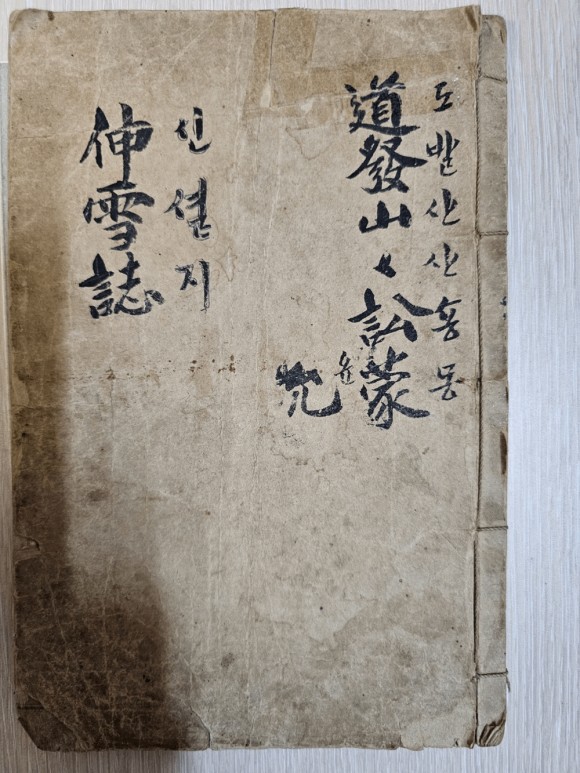 도발산산송몽
道發山々訟蒙
윤
允
신설지
伸雪誌